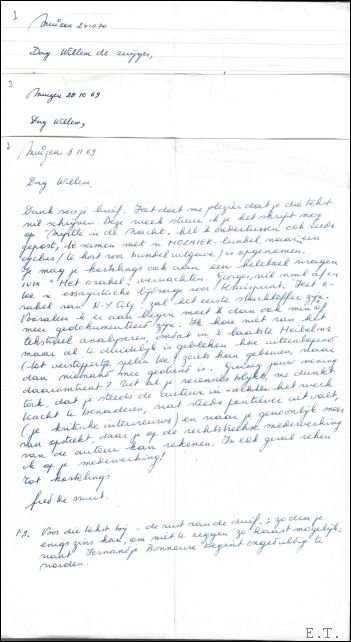 1
Muizen 241070
Dag Willem de zwijger,
3
Muizen 28 10 69
Dag Willem,
3
Muizen 8 11 69
Dag Willem,
Dank voor je brief. Feest doet me plezier dat je die tekst
wil schrijven. Deze week stuur ik je het skript nog
op. Mijnte in de Nacht. heb ik ondertussen ook reeds
gepost, te samen met 'n MOZAIEK-bundel maar een
cyclus (te kort voor bundel uitgave) is opgenomen.
Je mag je kortelings ook aan een
ivm "Het orakel" verwachten. Georges wil nml af en
toe 'n essayistische bijdrage voor Kruispunt. Feet o-
rakel van N.Y City zal het eerste slachtoffer zijn.
Vooraleer ik er aan begin moet ik dan ook min of
meer gedokumenteerd zijn. Ik hou niet van het
tekstueel analyseren, omdat in 't laatste Heibelnr
maar al te duidelijk is gebleken hoe uiteenlopend
(tot verstoppertje spelen toe) zoiets kan gebeuren, waar
dan niemand mee gediend is. Graag jouw mening
daaromtrent? Uit al je recensies blijkt, me dunkt
toch, dat je steeds de auteur in-achter het werk
tracht te benaderen, wat steeds positiever uitvalt,
(je kritische interviews) en waar je gewoonlijk meer
van opsteekt, daar je op de rechtstreekse medewerking
van de auteur kan rekenen. In elk geval reken
ik op je medewerking!
Tot kortelings
fred de swert.
P.S. Voor die tekst bij - de rust van de duif -; zo dra je
enigszins kan, om niet te zeggen zo haast mogelijk;
want Fernandje Bonneure begint ongeduldig te
worden.
E.T.